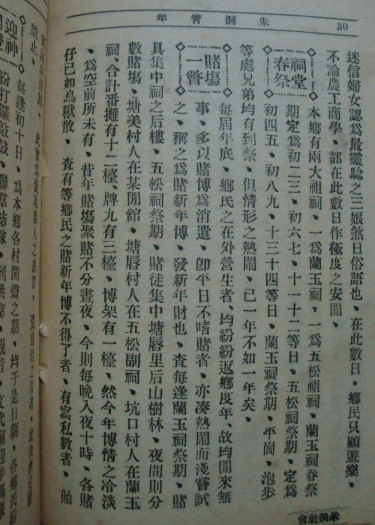 30
朱洞青年
迷信婦女認爲最靈驗之三娘煞日俗語也、在此數日、鄉民只顧遊樂、
不論農工商學、都在此數日作極度之安閒、
祠堂
春祭
本鄉有兩大祖祠、一爲蘭玉祠、一爲五松祖祠、蘭玉祠春祭
期定爲初二三、初六七、十一十二等日、五松祠祭期、定爲
初四五、初八九、十三十四等日、蘭玉祠祭期、平崗、泡步
等處兄弟均有到祭、但情形之熱鬧、已一年不如一年矣、
賭塲
一瞥
每屆年底、鄉民之在外營生者、均紛紛返鄉度年、故均閒來無
事、多以賭博爲消遣、卽平日不嗜賭者、亦湊熱鬧而淺嘗試
之、稱之爲賭新年博、發新年財也、查每逢蘭玉祠祭期、賭
具集中祠之后樓、五松祠祭期、賭徒集中塘唇里后山樹林、夜間則分
數賭塲、塘美村人在某閒館、塘唇村人在五松副祠、坑口村人在蘭玉
祠、合計番攤有十二檯、牌九有三檯、博架有一檯、然今年博情之冷淡
、爲空前所未有、昔年賭塲聚賭不分晝夜、今則每晚入夜十時、各賭
仔已如鳥獸散、查有等鄉民之賭新年博不得了者、有寫私數者、賭
禁止、
迎神
每逢初十日、爲本鄉各村開燈之期、
朱洞社會